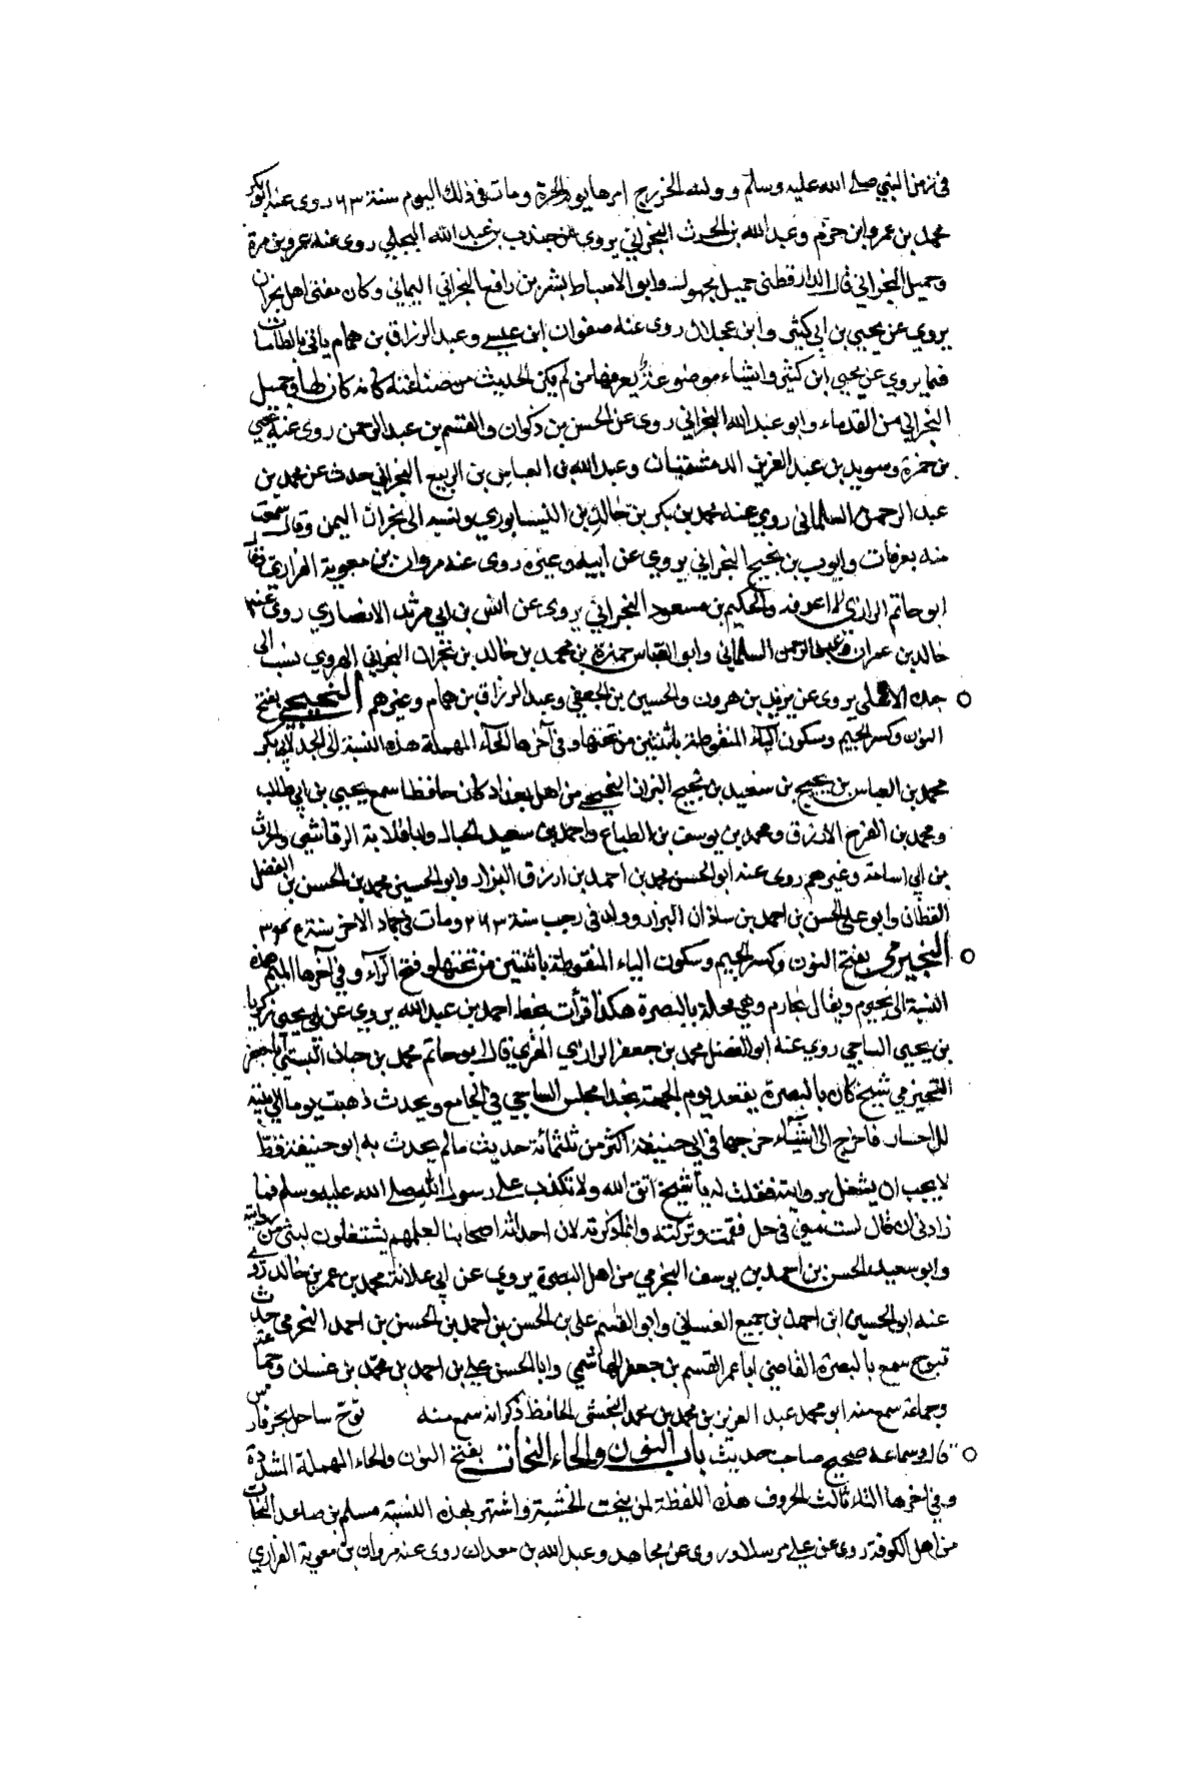 في زمن النبي صلى الله عليه وسلم وولته الخزرج امرها يوم الحرة ومات في ذلك اليوم سنة ٦٣ روى عنه ابو بكر
محمد بن عمرو ابن حزم وعبد الله بن الحرث النجراني يروي عن جندب بن عبد الله البجلي روى عنه عمرو بن مرة
وجميل النجراني قال الدارقطني جميل مجهول وابو الاسباط بشر بن رافع النجراني اليماني وكان مفتي اهل نجران
يروي عن يحيى بن ابي كثير وابن عجلان روى عنه صفوان ابن عيسى وعبد الرزاق بن همام ياتي بالطامات
فيما يروي عن يحيى ابن كثير واشياء موضوعة يعرفها من لم يكن الحديث من صناعته كانه كان لها وجميل
النجراني من القدماء وابو عبد الله النجراني روى عن الحسن بن ذكوان والقسم بن عبد الرحمن روى عنه يحيى
بن حمزة وسويد بن عبد العزيز الدمشقيان وعبد الله بن العباس بن الربيع النجراني حدث عن محمد بن
عبد الرحمن السلماني روى عنه محمد بن بكر بن خالد بن النيسابوري ونسبه الى نجران اليمن وقال سمعت
منه بعرفات وايوب بن نجيح النجراني يروي عن ابيه وغيره روى عنه مروان بن معوية الفزاري فقال
ابو حاتم الرازي لا اعرفه والحكيم بن مسعود النجراني يروى عن انس بن ابي مرثد الانصاري روى عنه
خالد بن عمران وعبد الرحمن السلماني وابو العباس حمزة بن محمد بن خالد بن نجران النجراني الهروي نسب الى
جده الاعلى يروى عن يزيد بن هرون والحسين بن الجعفي وعبد الرزاق بن همام وغيرهم النجيحي بفتح
النون وكسر الجيم وسكون الياء المنقوطة باثنتين من تحتها وفي آخرها الحاء المهملة هذه النسبة الى الجد لابي بكر
محمد بن العباس بن نجيح بن سعيد بن نجيح البزاز النجيحي من اهل بغداد كان حافظا سمع يحيى بن ابي طالب
ومحمد بن الفرج الازرق ومحمد بن يوسف بن الطباع واحمد بن سعيد الجمال وابا قلابة الرقاشي والحرث
بن ابي اسامة وغيرهم روى عنه ابو الحسن محمد بن احمد بن ارزق البزاز وابو الحسين محمد بن الحسن بن الفضل
القطان وابو علي الحسن بن احمد بن شاذان البزاز وولد في رجب سنة ٢٦٣ ومات في جماد الاخر سنة
النجيرمي بفتح النون وكسر الجيم وسكون الياء المنقوطة باثنتين من تحتها وفتح الراء وفي آخرها الميم هذه
النسبة الى نجيرم ويقال نجارم وهي محلة بالبصرة هكذا قرأت بخط احمد بن عبد الله يروي عن ابي يحيى زكريا
بن يحيى الساجي روى عنه ابو الفضل محمد بن جعفر الرازي المقري قال ابو حاتم محمد بن حبان البستي ابا جعفر
النجيرمي شيخ كان بالبصرة يقعد يوم الجمعة بحذا مجلس الساجي في الجامع ويحدث ذهبت يوما الى بيته
للاختبار فاخرج الى اشياء خرجها في ابي حنيفة اكثر من ثلثمائة حديث مالم يحدث به ابو حنيفة قط
لا يجب ان يشغل بروايته فقلت له يا شيخ اتق الله ولا تكذب على رسول الله صلى الله عليه وسلم فما
زادني ان قال لست مني في حل فقمت وتركته وانما ذكرته لان احداث اصحابنا لعلهم يشتغلون بشئ من روايته
وابو سعيد الحسن بن احمد بن يوسف النجيرمي من اهل البصرة يروي عن ابي علاثة محمد بن عمر بن خالد روى
عنه ابو الحسين ابن احمد بن جميع الغساني وابو القسم علي بن الحسن بن احمد بن الحسن بن احمد النجيرمي حدث
بتوج سمع بالبصرة القاضي ابا عمر القسم بن جعفر الهاشمي وابا الحسن علي بن احمد بن محمد بن غسان وجماعة
وجماعة سمع منه ابو محمد عبد العزيز بن محمد بن محمد النخشبي الحافظ ذكر انه سمع منه توج ساحل بحر فارس
قال وسماعه صحيح صاحب حديث باب النون والحاء النحات بفتح النون والحاء المهملة المشددة
وفي اخرها التاء ثالث الحروف هذه اللفظة لمن ينحت الخشبة واشتهر بهذه النسبة مسلم بن صاعد النحات
من اهل الكوفة روى عن علي مرسلا وروى عن مجاهد وعبد الله بن معدان روى عنه مروان بن معوية الفزاري